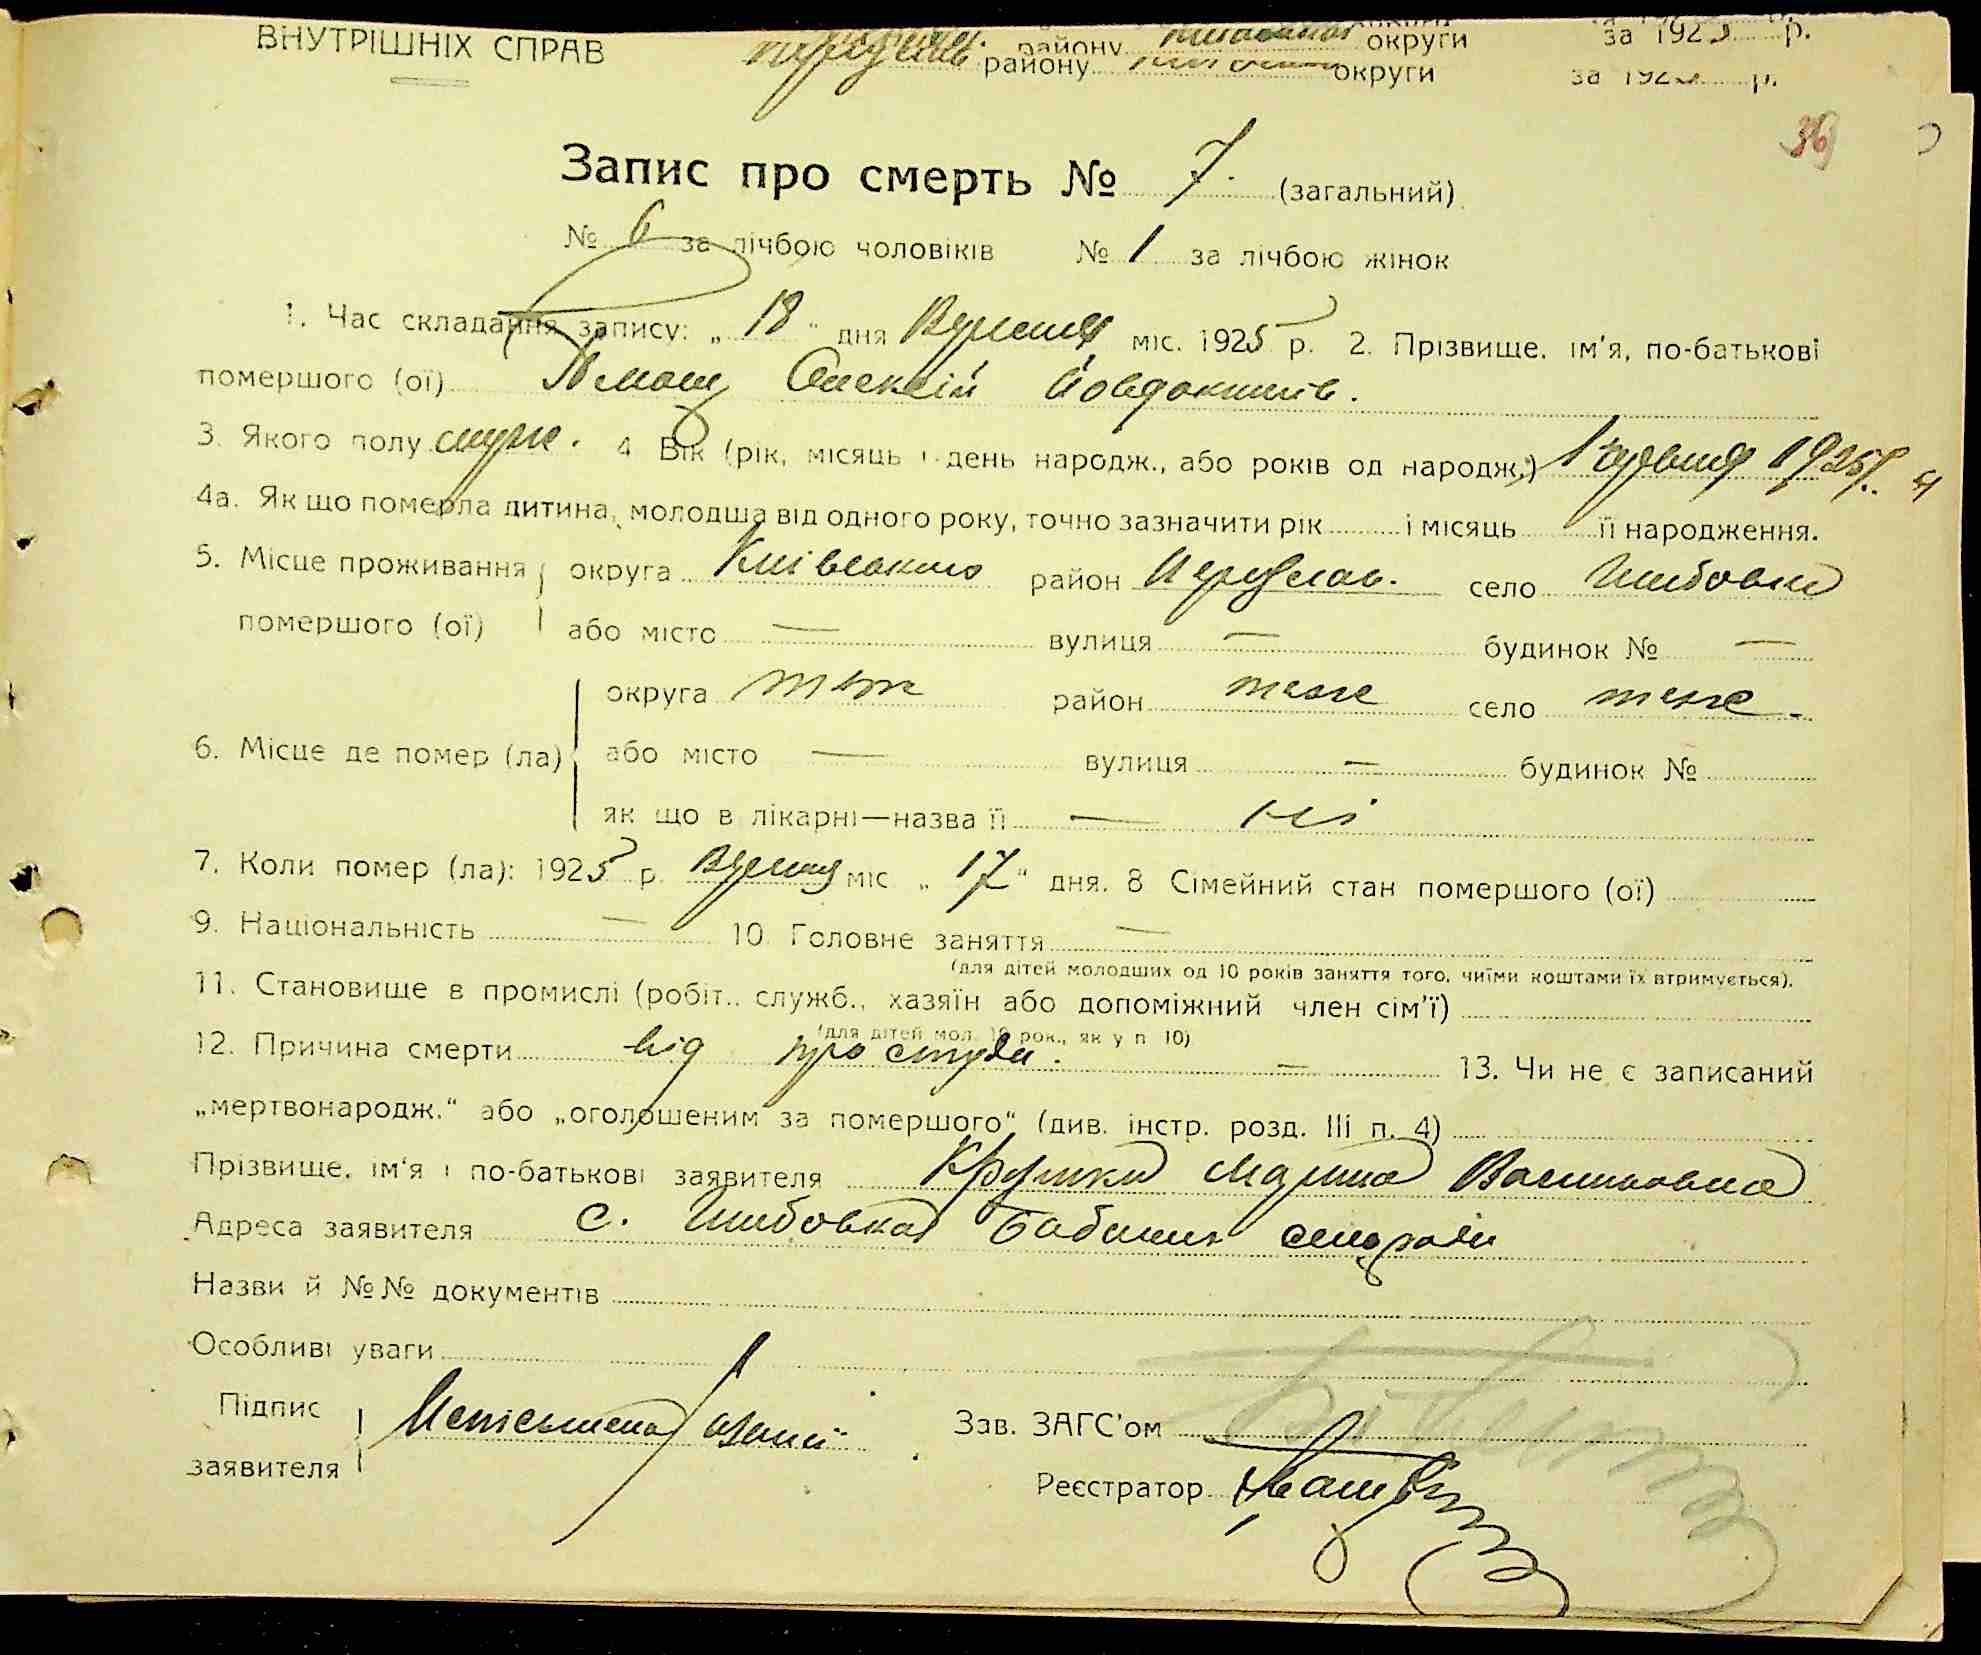 ВНУТРІШНІХ СПРАВ району округи за 1925 р.
району округи за 192 р.
36
Запис про смерть № 7. (загальний)
№ 6 за лічбою чоловіків № 1 за лічбою жінок
1. Час складання запису: „ 18 " дня Вересня міс. 1925 р. 2. Прізвище, ім'я, по-батькові
помершого (ої) Олексій Йовдокимів.
3. Якого полу муже. 4 Вік (рік, місяць і день народж., або років од народж.) 1925р.
4а. Як що померла дитина, молодша від одного року, точно зазначити рік і місяць її народження.
5. Місце проживання округа Київського район Переяслав. село
помершого (ої) або місто — вулиця — будинок № —
округа теж район теже село теже
6. Місце де помер (ла) або місто — вулиця — будинок №
як що в лікарні—назва її — ні
7. Коли помер (ла): 1925 р. Вересня міс „ 17 " дня. 8 Сімейний стан помершого (ої)
9. Національність — 10. Головне заняття —
(для дітей молодших од 10 років заняття того, чиїми коштами їх втримується).
11. Становище в промислі (робіт., служб., хазяїн або допоміжний член сім'ї)
(для дітей мол. 10 рок., як у п 10)
12. Причина смерти від простуди. — 13. Чи не є записаний
„мертвонародж." або „оголошеним за помершого" (див. інстр. розд. III п. 4)
Прізвище, ім'я і по-батькові заявителя Марина Василовна
Адреса заявителя с. сильради
Назви й №№ документів
Особливі уваги
Підпис Неписьмена Зав. ЗАГС'ом
заявителя Реєстратор